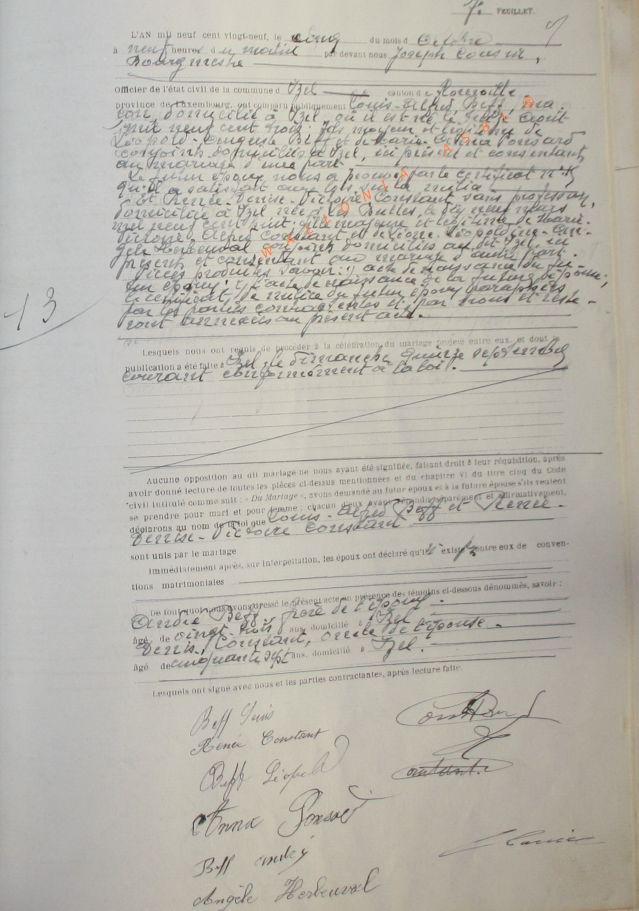 7e FEUILLET.
L'AN mil neuf cent vingt-neuf, le cinq du mois d'Octobre
à neuf heures du matin par devant nous Joseph
Bourgmestre
Officier de l'état civil de la commune d'Izel canton de Florenville
province de Luxembourg, ont comparu publiquement Louis-Alfred Beff, ma-
çon, domicilié à Izel, où il est né le août
mil neuf cent trois; fils majeur et légitime de
Léopold-Auguste Beff et de Marie- Ponsard
conjoints domiciliés à Izel, ici présent et consentants
au mariage d'une part.
Le futur époux nous a prouvé par le certificat
qu'il a satisfait aux lois sur la milice
Et Renée-Denise-Victoire Constant sans profession,
domiciliée à Izel née à Les Bulles, le dix neuf mars
mil neuf cent huit; fille majeure et légitime de Marie-
Victoire Constant et de Léopoldine-An-
gèle Herbeuval conjoints domiciliés au dit Izel, ici
présents et consentant au mariage d'autre part.
Pièces produites savoir: 1) acte de naissance du fu-
tur époux; 2) acte de naissance de la future épouse;
le certificat de milice du futur époux paraphées
par les parties contractantes et par nous et reste-
ront annexées au présent acte.
13
Lesquels nous ont requis de procéder à la célébration du mariage projeté entre eux, et dont
publication a été faite à Izel le dimanche quinze septembre
courant conformément à la loi.
Aucune opposition au dit mariage ne nous ayant été signifiée, faisant droit à leur réquisition, après
avoir donné lecture de toutes les pièces ci-dessus mentionnées et du chapitre VI du titre cinq du Code
civil intitulé comme suit : « Du Mariage », avons demandé au futur époux et à la future épouse s'ils veulent
se prendre pour mari et pour femme : chacun d'eux ayant répondu séparément et affirmativement,
déclarons au nom de la loi que Louis-Alfred Beff et Renée-
Denise-Victoire Constant
sont unis par le mariage
Immédiatement après, sur interpellation, les époux ont déclaré qu'il existe entre eux de conven-
tions matrimoniales
De tout quoi nous avons dressé le présent acte en présence de témoins ci-dessous dénommés, savoir :
André Beff, frère de l'époux
âgé de vingt-trois ans, domicilié à Izel.
Denis, Constant, oncle de l'épouse.
âgé de cinquante sept ans, domicilié à Izel.
Lesquels ont signé avec nous et les parties contractantes, après lecture faite.
Beff Louis
Renée Constant
Beff Léopold
Anna Ponsard
Beff André
Angèle Herbeuval